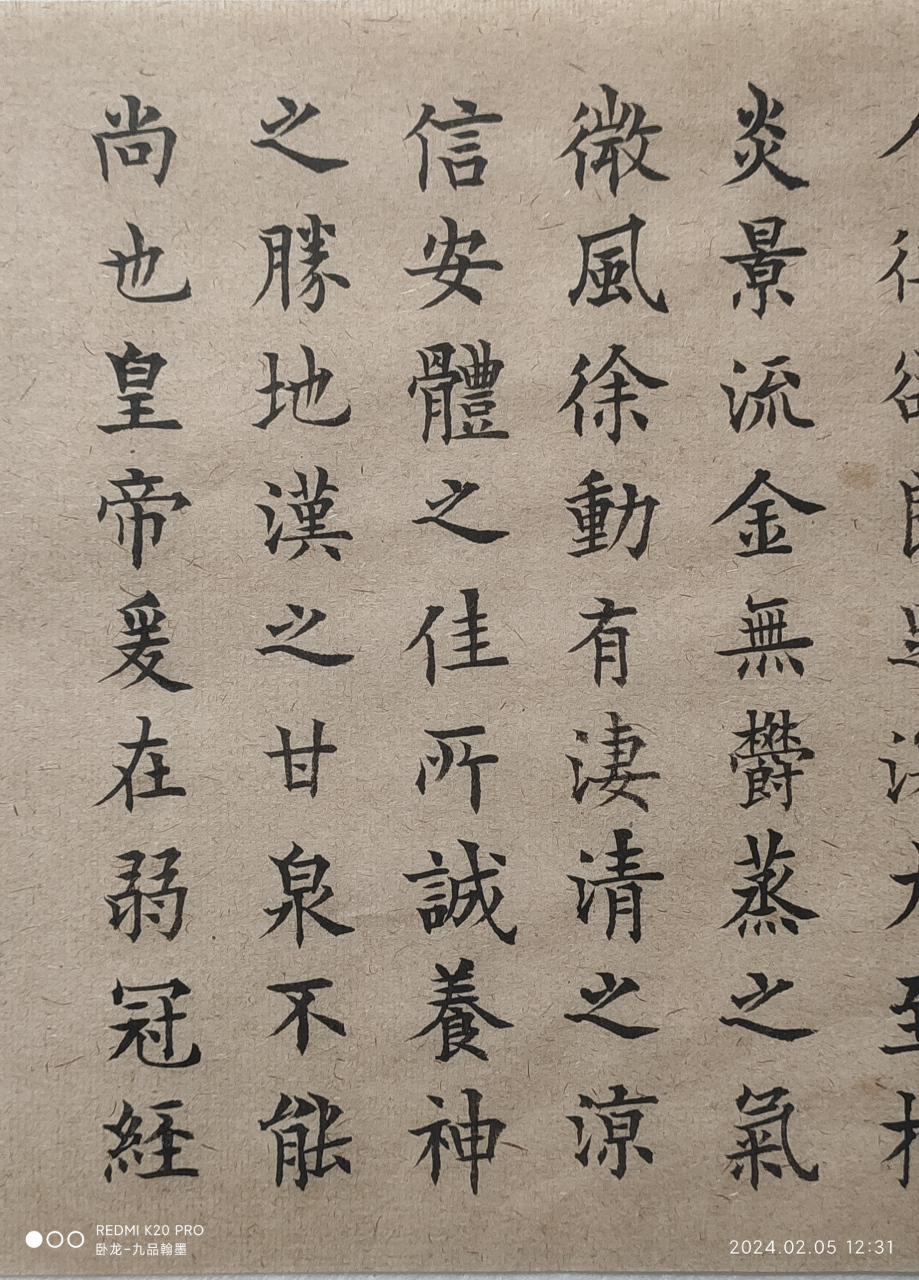 炎景流金無鬱蒸之氣
微風徐動有淒清之涼
信安體之佳所誠養神
之勝地漢之甘泉不能
尚也皇帝爰在弱冠經
REDMI K20 PRO
卧龙-九品翰墨
2024.02.05 12:31